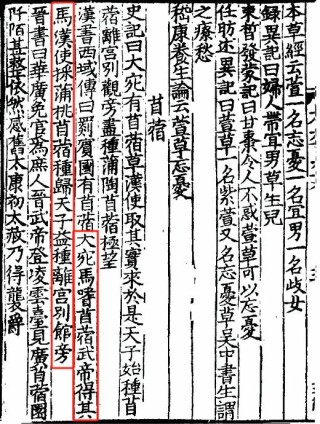 本草經云萱一名忘憂一名宜男一名歧女
録異記曰婦人帶宜男草生兒
束晳發蒙記曰甘棗令人不惑萱草可以忘憂
任昉述異記曰萱草一名紫萱又名忘憂草吳中書生謂
之療愁
嵇康養生論云萱草忘憂
苜蓿
史記曰大宛有苜蓿草漢使取其實來於是天子始種苜
蓿離宮別觀旁盡種蒲陶苜蓿極望
漢書西域傳曰罽賓國有苜蓿大宛馬嗜苜蓿武帝得其
馬漢使採蒲桃苜蓿種歸天子益種離宮別館旁
晉書曰華廣免官為庶人晉武帝登凌雲臺見廣苜蓿園
阡陌甚整依然感舊太康初大赦乃得襲爵